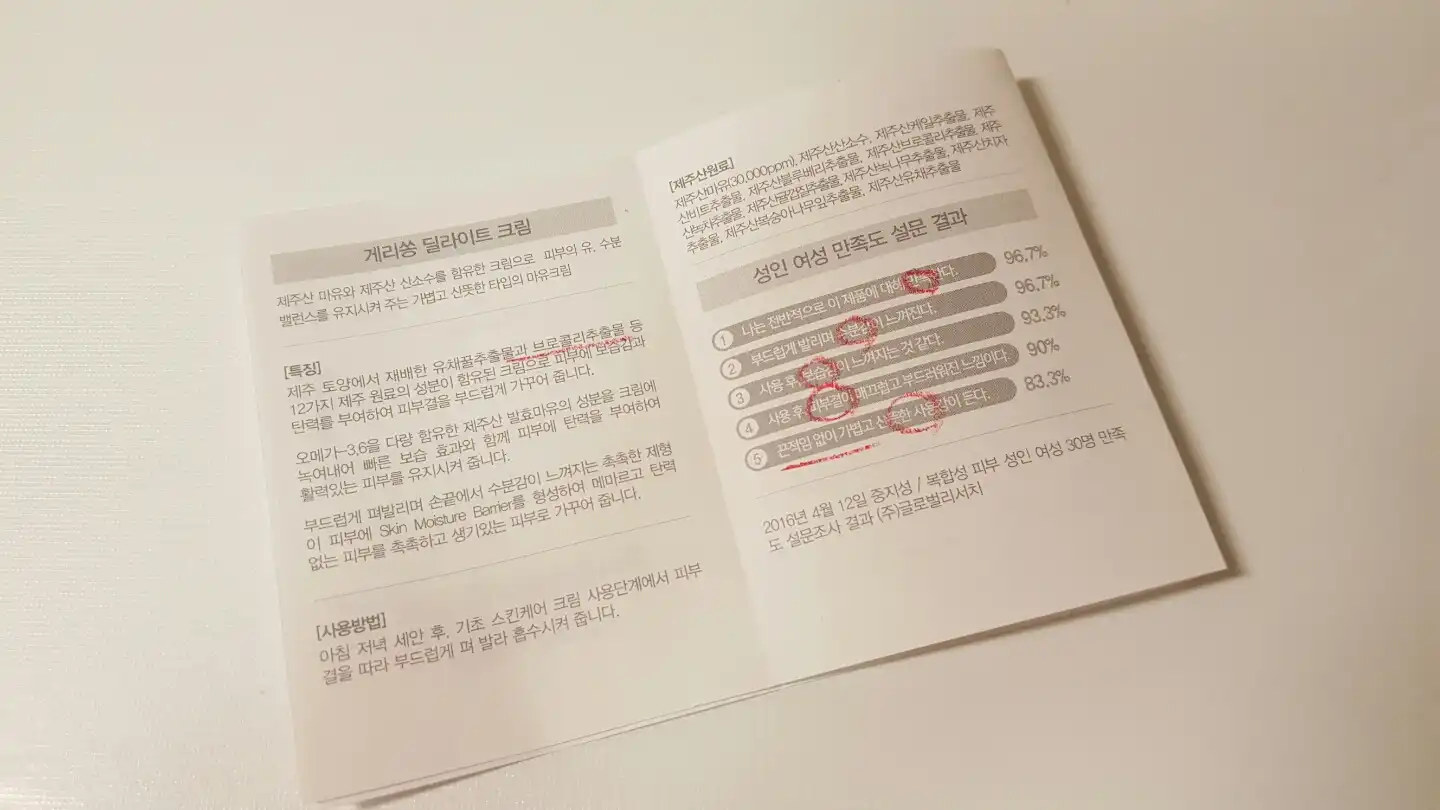 게리쏭 딜라이트 크림
제주산 마유와 제주산 산소수를 함유한 크림으로 피부의 유, 수분
밸런스를 유지시켜 주는 가볍고 산뜻한 타입의 마유크림
[특징]
제주 토양에서 재배한 유채꿀추출물과 브로콜리추출물 등
12가지 제주 원료의 성분이 함유된 크림으로 피부에 보습감과
탄력를 부여하여 피부결을 부드럽게 가꾸어 줍니다.
오메가-3,6을 다량 함유한 제주산 발효마유의 성분을 크림에
녹여내어 빠른 보습 효과와 함께 피부에 탄력을 부여하여
활력있는 피부를 유지시켜 줍니다.
부드럽게 펴발리며 손끝에서 수분감이 느껴지는 촉촉한 제형
이 피부에 Skin Moisture Barrier를 형성하여 메마르고 탄력
없는 피부를 촉촉하고 생기있는 피부로 가꾸어 줍니다.
[사용방법]
아침 저녁 세안 후, 기초 스킨케어 크림 사용단계에서 피부
결을 따라 부드럽게 펴 발라 흡수시켜 줍니다.
[제주산원료]
제주산마유(30,000ppm), 제주산산소수, 제주산케일추출물, 제주
산비트추출물, 제주산블루베리추출물, 제주산브로콜리추출물, 제주
산녹차추출물, 제주산귤껍질추출물, 제주산녹나무추출물, 제주산치자
추출물, 제주산복숭아나무잎추출물, 제주산유채추출물
성인 여성 만족도 설문 결과
1 나는 전반적으로 이 제품에 대해 만족한다. 96.7%
2 부드럽게 발리며 수분감이 느껴진다. 96.7%
3 사용 후 보습감이 느껴지는 것 같다. 93.3%
4 사용 후 피부결이 매끄럽고 부드러워진 느낌이다. 90%
5 끈적임 없이 가볍고 산뜻한 사용감이 든다. 83.3%
2016년 4월 12일 중지성 / 복합성 피부 성인 여성 30명 만족
도 설문조사 결과 (주)글로벌리서치